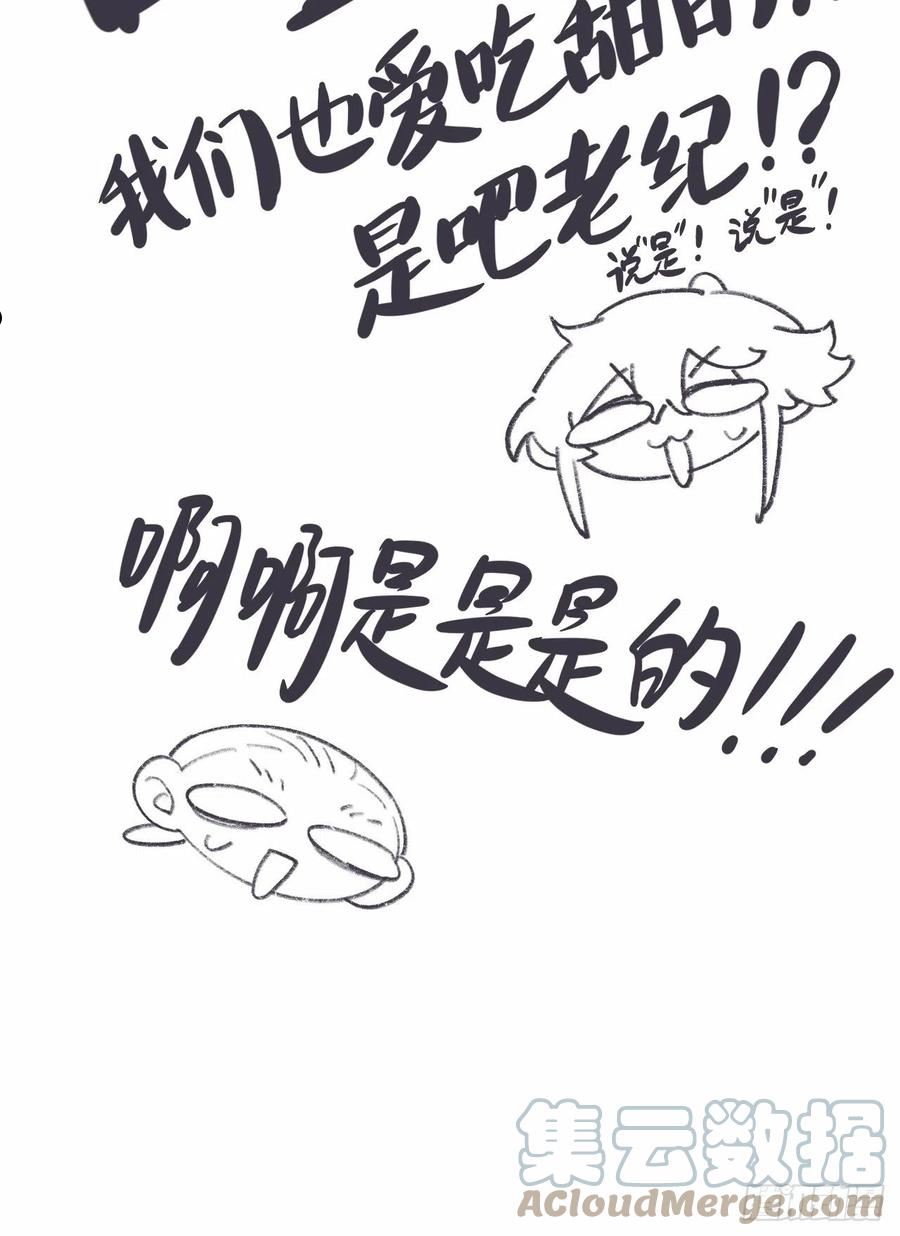 我们也爱吃甜的
是吧老纪!?
说"是"! 说"是"!
啊啊是是是的!!!
集云数据
ACloudMerge.com